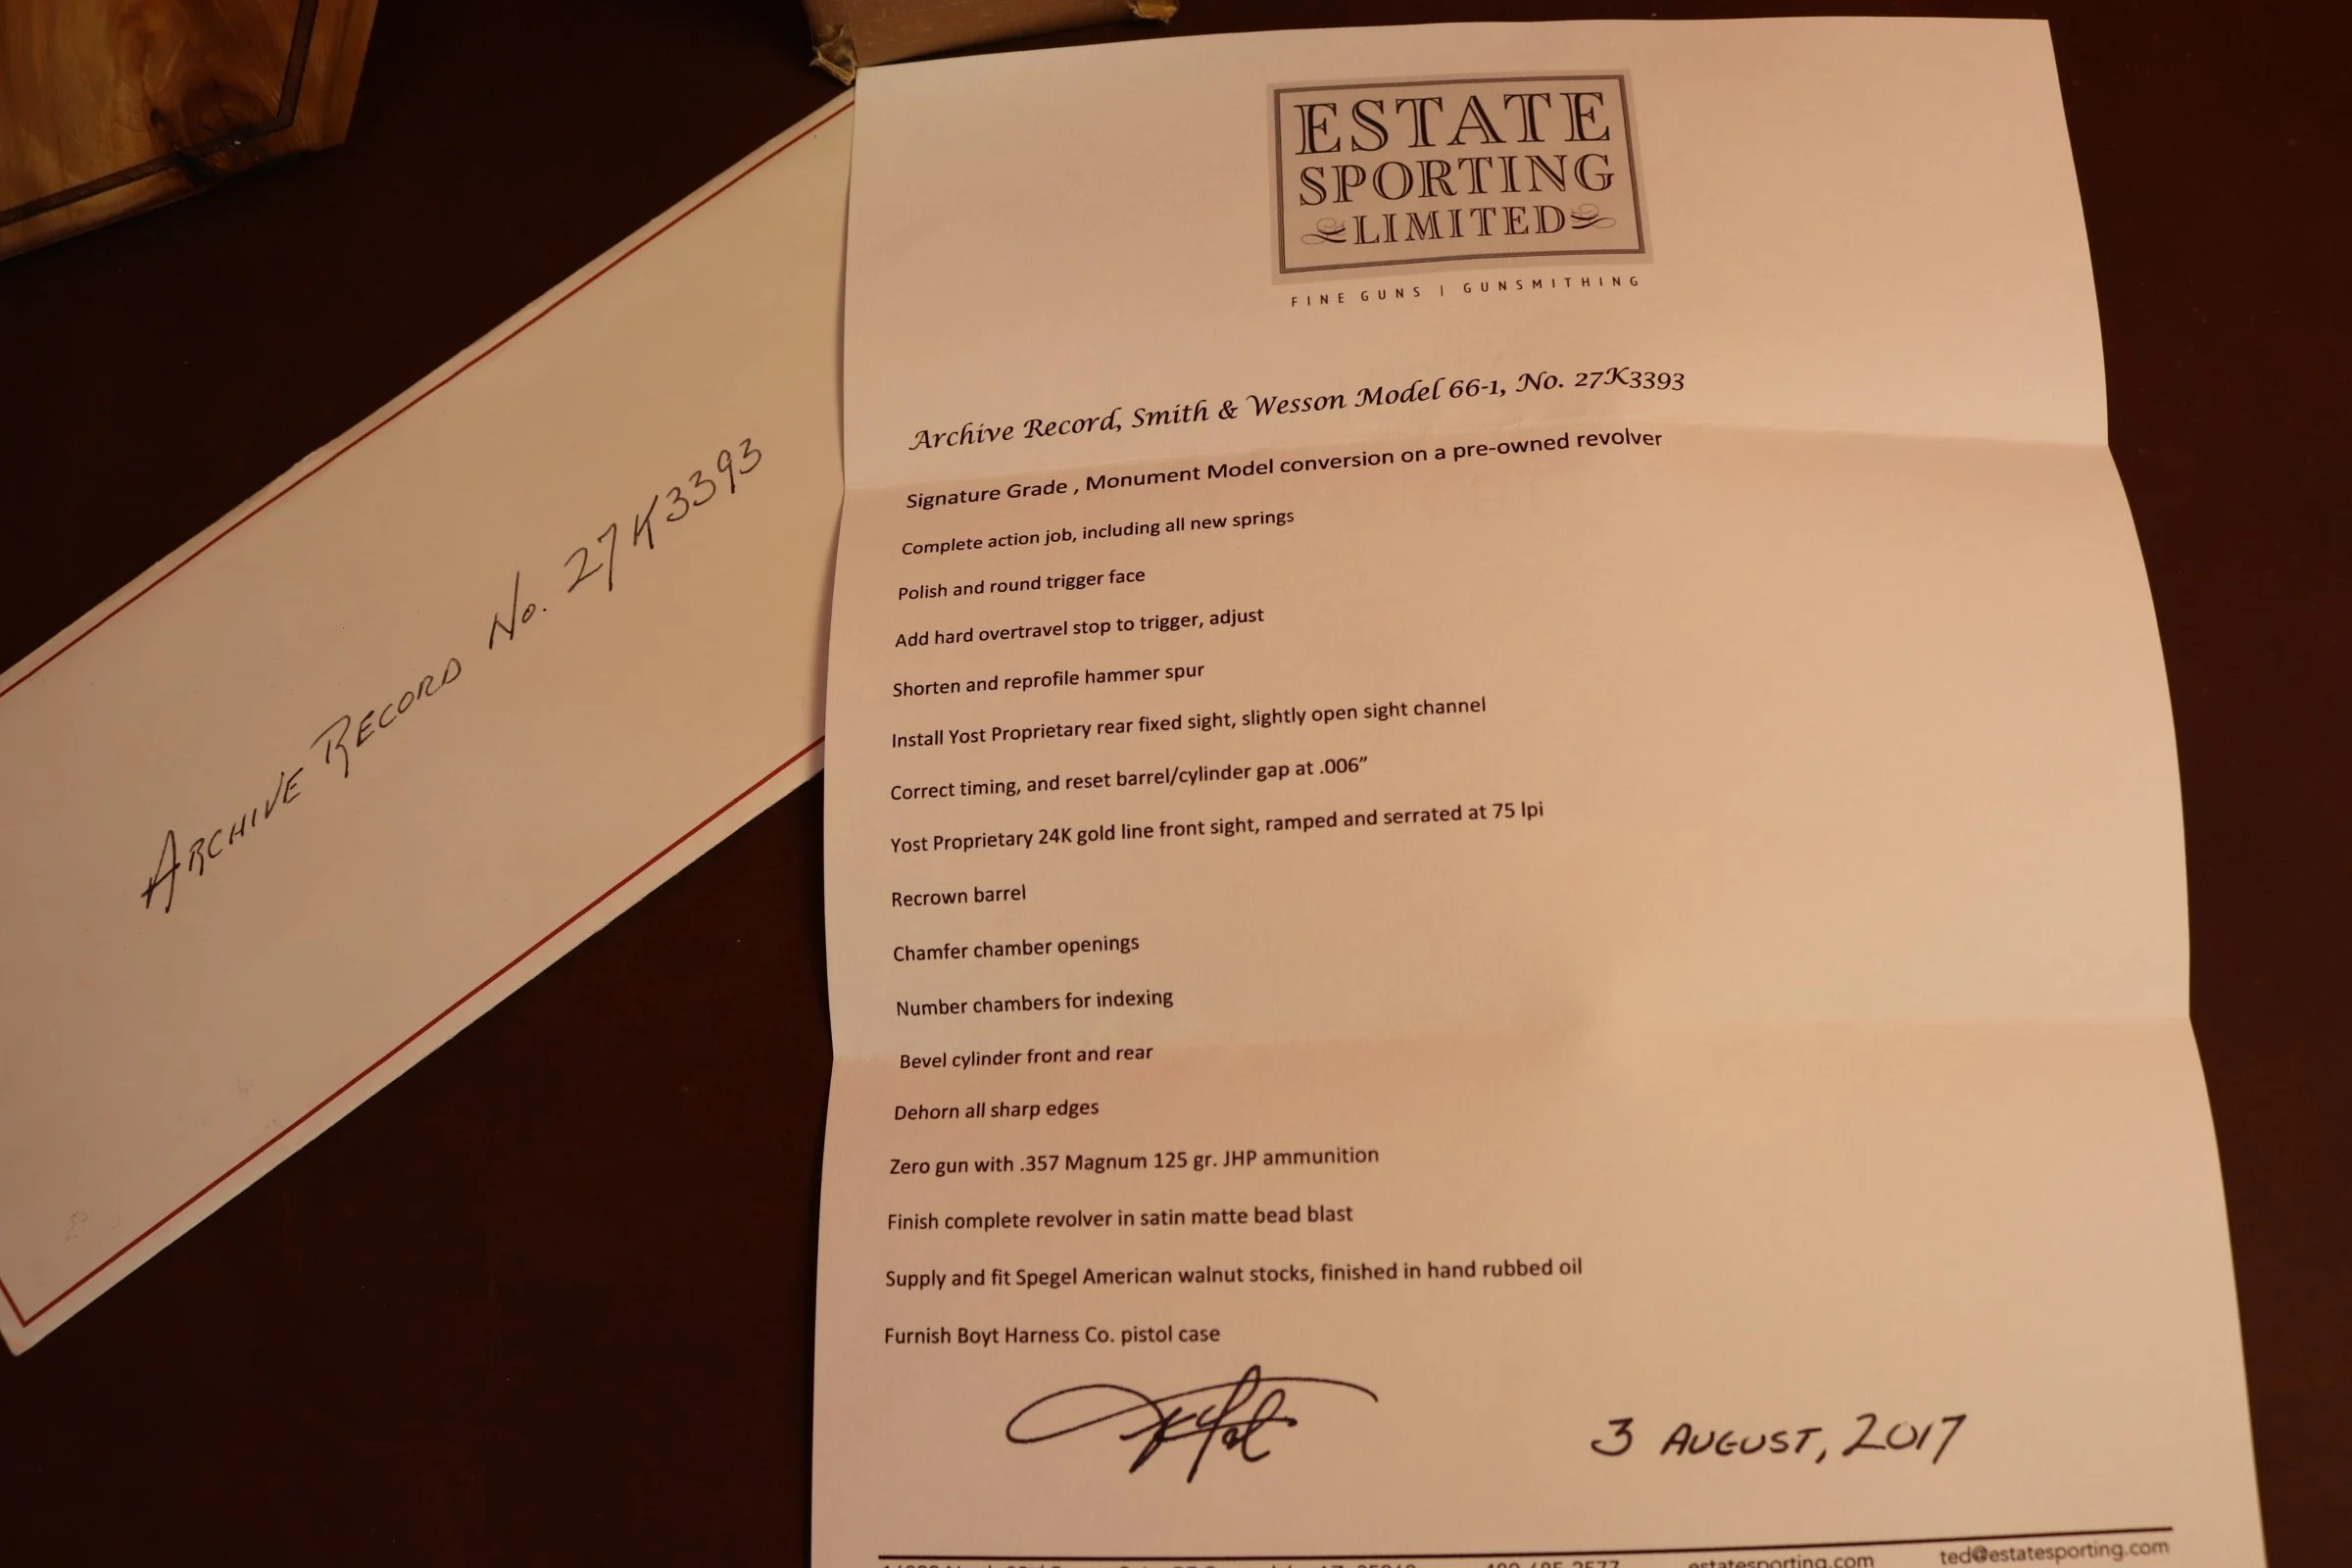 ARCHIVE RECORD No. 27K3393
ESTATE
SPORTING
LIMITED
FINE GUNS | GUNSMITHING
Archive Record, Smith & Wesson Model 66-1, No. 27K3393
Signature Grade , Monument Model conversion on a pre-owned revolver
Complete action job, including all new springs
Polish and round trigger face
Add hard overtravel stop to trigger, adjust
Shorten and reprofile hammer spur
Install Yost Proprietary rear fixed sight, slightly open sight channel
Correct timing, and reset barrel/cylinder gap at .006”
Yost Proprietary 24K gold line front sight, ramped and serrated at 75 lpi
Recrown barrel
Chamfer chamber openings
Number chambers for indexing
Bevel cylinder front and rear
Dehorn all sharp edges
Zero gun with .357 Magnum 125 gr. JHP ammunition
Finish complete revolver in satin matte bead blast
Supply and fit Spegel American walnut stocks, finished in hand rubbed oil
Furnish Boyt Harness Co. pistol case
3 AUGUST, 2017
estatesporting.com ted@estatesporting.com